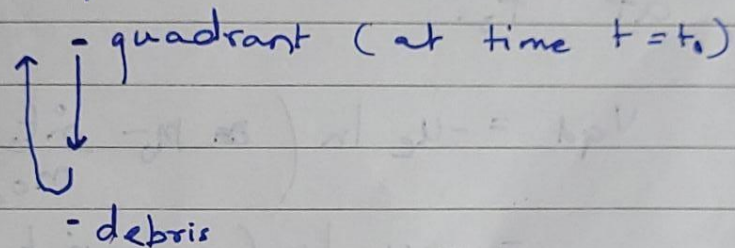 - quadrant (at time t = t₀)
- debris